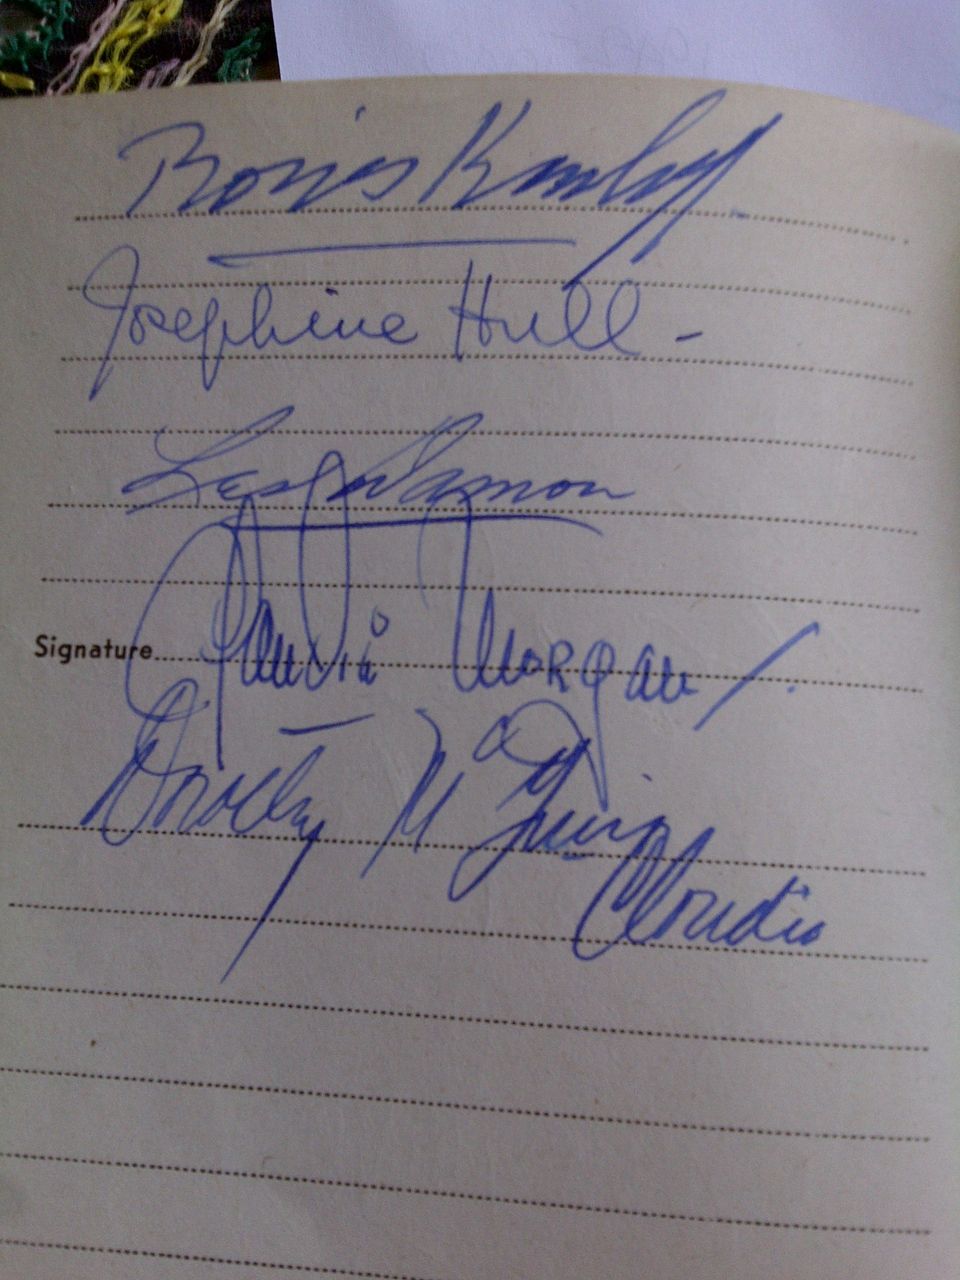 Boris Karloff
Josephine Hull -
Lester Damon
Signature Claudia Morgan
Dorothy McGuire
Claudia